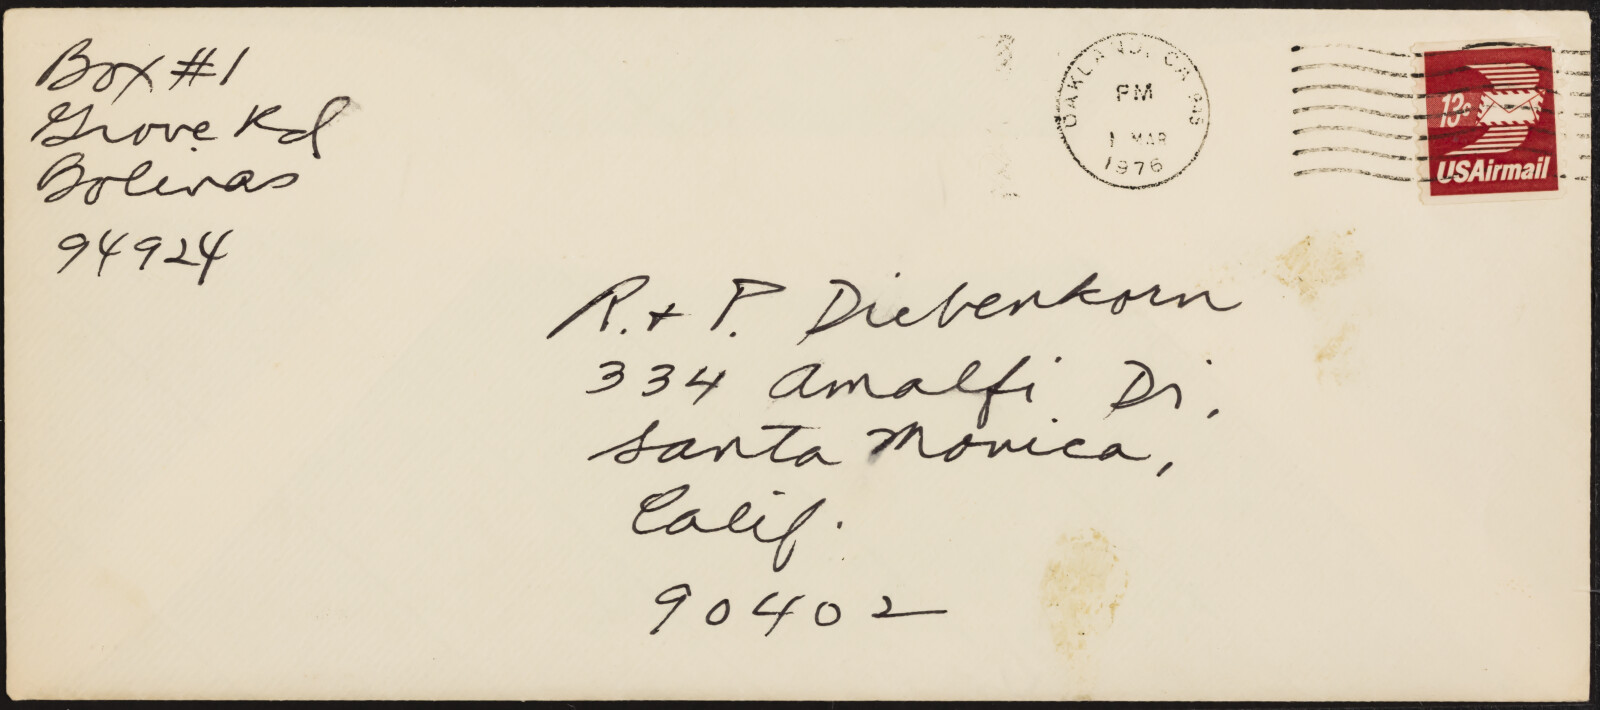 Box #1
Grove Rd
Bolinas
94924
OAKLAND, CA 945
PM
1 MAR
1976
13c
USAirmail
R. + P. Diebenkorn
334 Amalfi Dr.
Santa Monica,
Calif.
90402